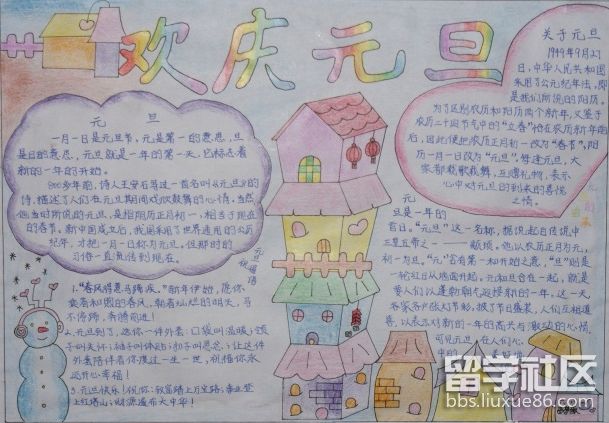 欢庆元旦
元 旦
一月一日是元旦节,元是第一的意思,旦
是日的意思,元旦就是一年的第一天,它标志着
新的一年的开始。
900多年前,诗人王安石写过一首名叫《元旦》的
诗,描述了人们在元旦期间或欢欣鼓舞的心情。当然
他当时所说的元旦,是指阴历正月初一,相当于现在
的春节。新中国成立后,我国采用了世界通用的公历
纪年,才把一月一日称为元旦。但那时的
习俗一直流传到现在。
关于元旦
1949年9月27
日,中华人民共和国
采用了公元纪年法,即
是我们所说的阳历,
为了区别农历和阳历两个新年,又鉴于
农历二十四节气中的“立春”恰在农历新年前
后,因此便把农历正月初一改为“春节”,阳
历一月一日改为“元旦”。每逢元旦,大
家都载歌载舞,互赠礼物,表示
心中对元旦的到来的喜悦
之情。
元
旦是一年的
首日。“元旦”这一名称,据说起自传说中
三皇五帝之一——颛顼。他以农历正月为元,
初一为旦。“元”含有第一和开始之意,“旦”则是
一轮红日从地面升起。元和旦合在一起,就是
要人们以蓬勃朝气迎接新的一年。这一天
各家各户张灯结彩,披了节日盛装,人们互相道
喜,以表示对新的一年的高兴与激动的心情。
可见元旦,在人们心
中的
元旦祝福语
1.“春风得意马蹄疾。”新年伊始,愿你
乘着和煦的春风,朝着灿烂的明天,马
不停蹄,奔腾前进!
2.元旦到了,送你一件外套:口袋叫温暖;领
子叫关怀;袖子叫体贴;扣子叫思念;让这件
外套陪伴着你度过一生一世,祝福你永
远开心幸福!
3.元旦快乐!祝你:致富踏上万宝路;事业登
上红塔山;财源遍布大中华!
留学社区
bbs.liuxue86.com